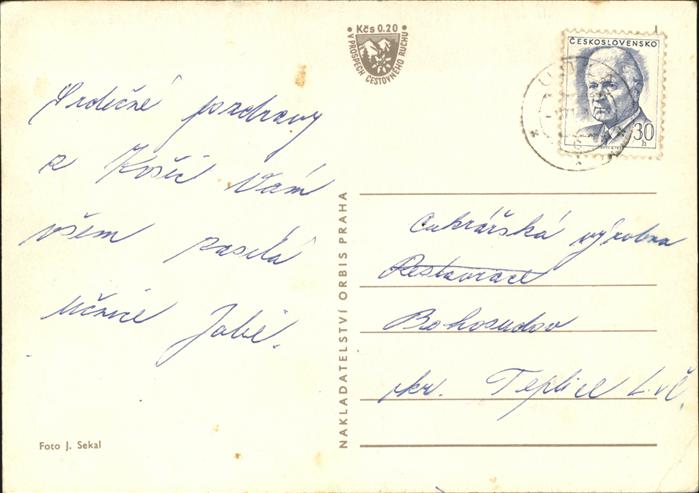 Kčs 0.20
V PROSPĚCH CESTOVNÉHO RUCHU
ČESKOSLOVENSKO
30
h
Srdečné pozdravy
z Košic Vám
všem posílá
učnice
Cukrářská výrobna
Restaurace
Bohosudov
okr. Teplice L.vč.
NAKLADATELSTVÍ ORBIS PRAHA
Foto J. Sekal